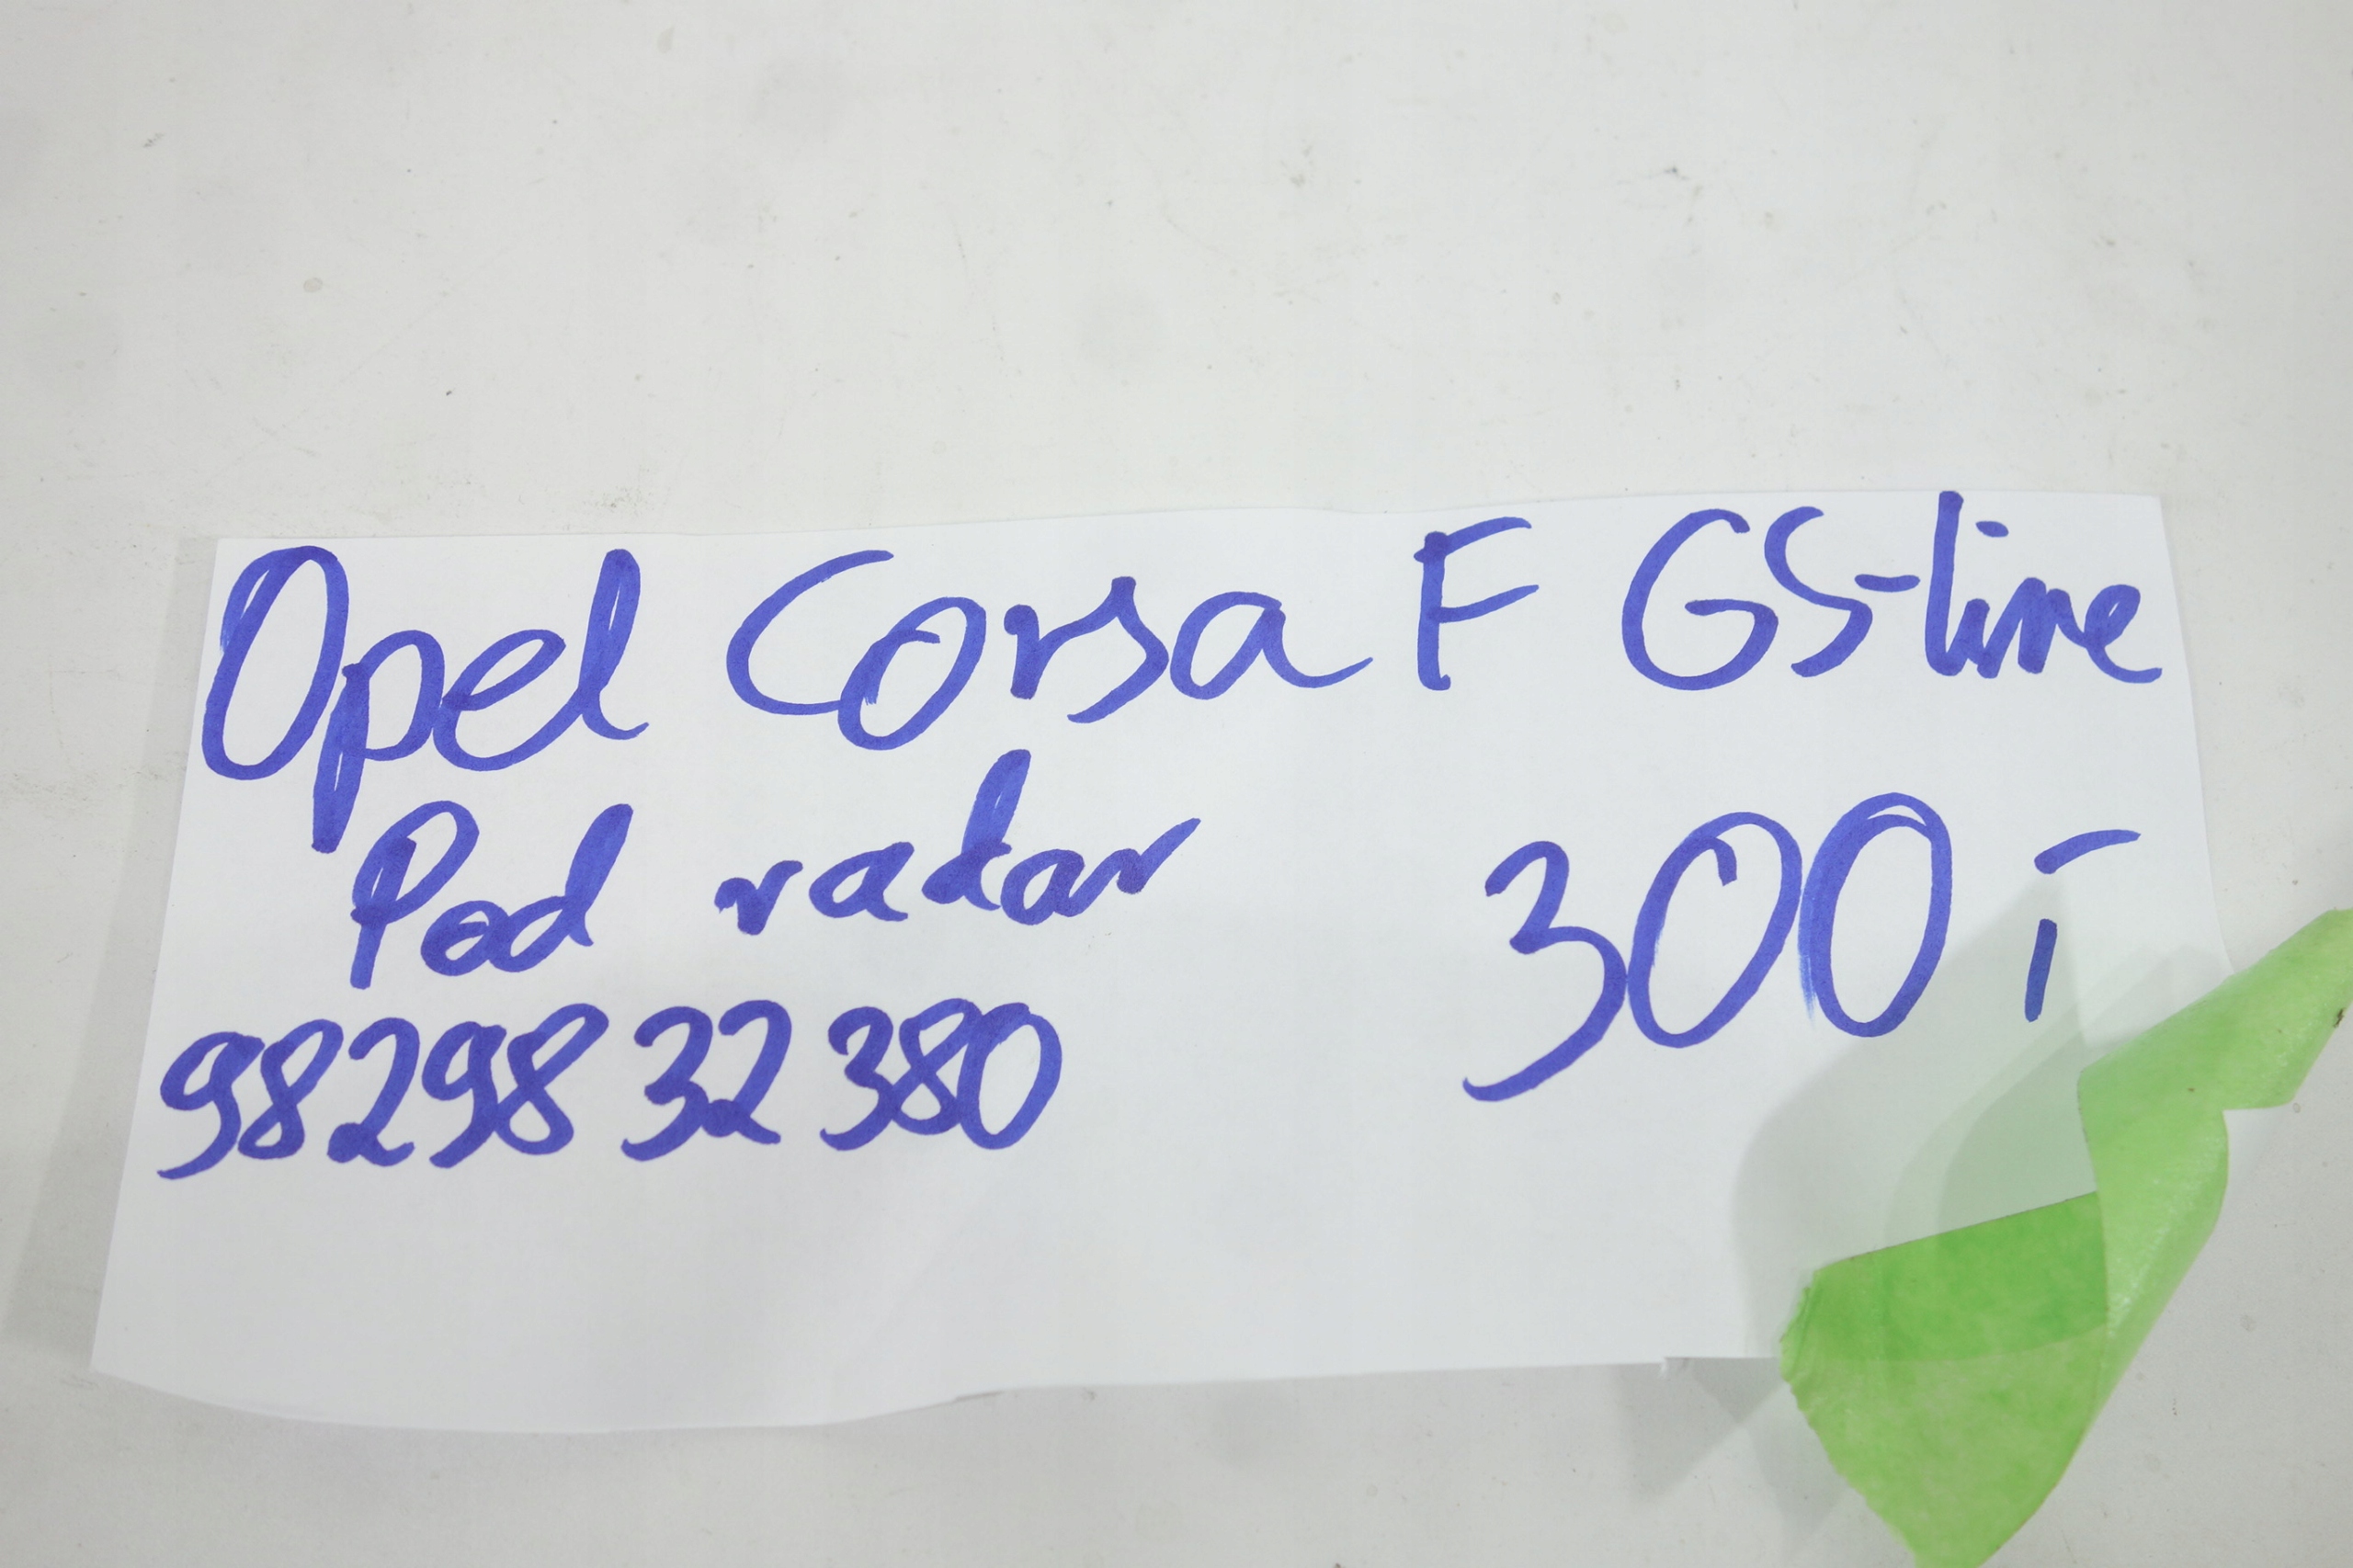 Opel Corsa F GS-line
Pod radar 300,-
98298 32 380